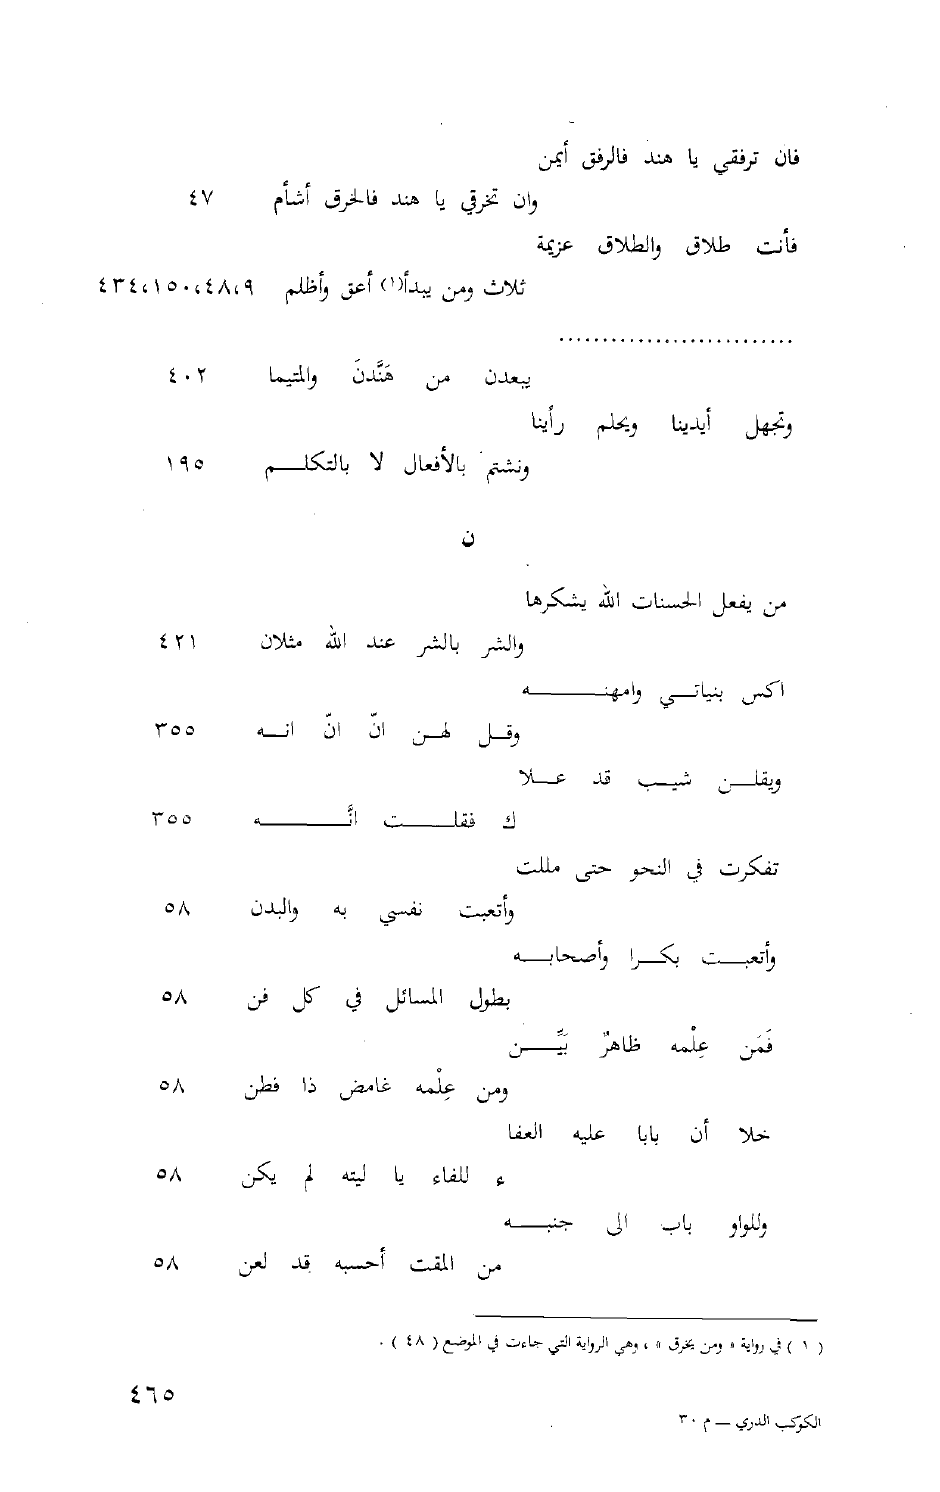 فان ترفقي يا هند فالرفق أيمن
وان تخرقي يا هند فالخرق أشأم ٤٧
فأنت طلاق والطلاق عزيمة
ثلاث ومن يبدأ(١) أعق وأظلم ٩،٤٨،١٥٠،٤٣٤
...........................
يبعدن من هَنَّدنَ والمتيما ٤٠٢
وتجهل أيدينا ويحلم رأينا
ونشتم بالأفعال لا بالتكلــم ١٩٥
ن
من يفعل الحسنات الله يشكرها
والشر بالشر عند الله مثلان ٤٢١
اكس بنياتــي وامهنــــــه
وقــل لهــن انّ انّ انــه ٣٥٥
ويقلــن شيــب قد عــلا
ك فقلــــت انَّــــــه ٣٥٥
تفكرت في النحو حتى مللت
وأتعبت نفسي به والبدن ٥٨
وأتعبــت بكــرا وأصحابــه
بطول المسائل في كل فن ٥٨
فَمَن عِلْمه ظاهرٌ بَيِّــــن
ومن عِلْمه غامض ذا فطن ٥٨
خلا أن بابا عليه العفا
ء للفاء يا ليته لم يكن ٥٨
وللواو باب الى جنبــــه
من المقت أحسبه قد لعن ٥٨
( ١ ) في رواية « ومن يخرق » ، وهي الرواية التي جاءت في الموضع ( ٤٨ ) .
٤٦٥
الكوكب الدري – م ٣٠